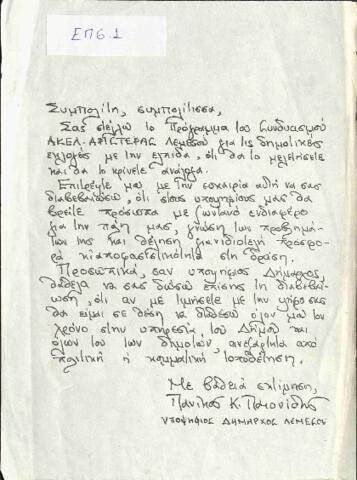 ΕΠ6.1
Συμπολίτη, συμπολίτισσα,
Σας στέλλω το Πρόγραμμα του Συνδυασμού
ΑΚΕΛ-ΑΡΙΣΤΕΡΑΣ Λεμεσού για τις δημοτικές
εκλογές με την ελπίδα, ότι θα το μελετήσετε
και θα το κρίνετε ανάλογα.
Επιτρέψτε μου με την ευκαιρία αυτή να σας
διαβεβαιώσω, ότι στους υποψηφίους μας θα
βρείτε πρόσωπα με ζωντανό ενδιαφέρο
για την πόλη μας, γνώση των προβλημά-
των της και θέληση για ανιδιοτελή προσφο-
ρά κι αποφασιστικότητα στη δράση.
Προσωπικά, σαν υποψήφιος Δήμαρχος,
θάθελα να σας δώσω επίσης τη διαβεβαί-
ωση, ότι αν με τιμήσετε με την ψήφο σας
θα είμαι σε θέση να διαθέσω όλον μου τον
χρόνο στην υπηρεσία του Δήμου και
όλων των δημοτών, ανεξάρτητα από
πολιτική ή κομματική τοποθέτηση.
Με βαθειά εκτίμηση,
Πανίκος Κ. Παιονίδης
ΥΠΟΨΗΦΙΟΣ ΔΗΜΑΡΧΟΣ ΛΕΜΕΣΟΥ